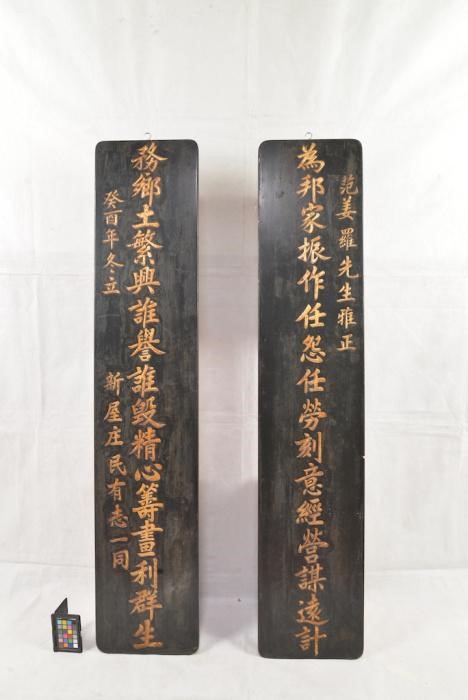 范姜羅先生雅正
為邦家振作任怨任勞刻意經營謀遠計
務鄉土繁興誰譽誰毀精心籌畫利群生
癸酉年冬立
新屋庄民有志一同